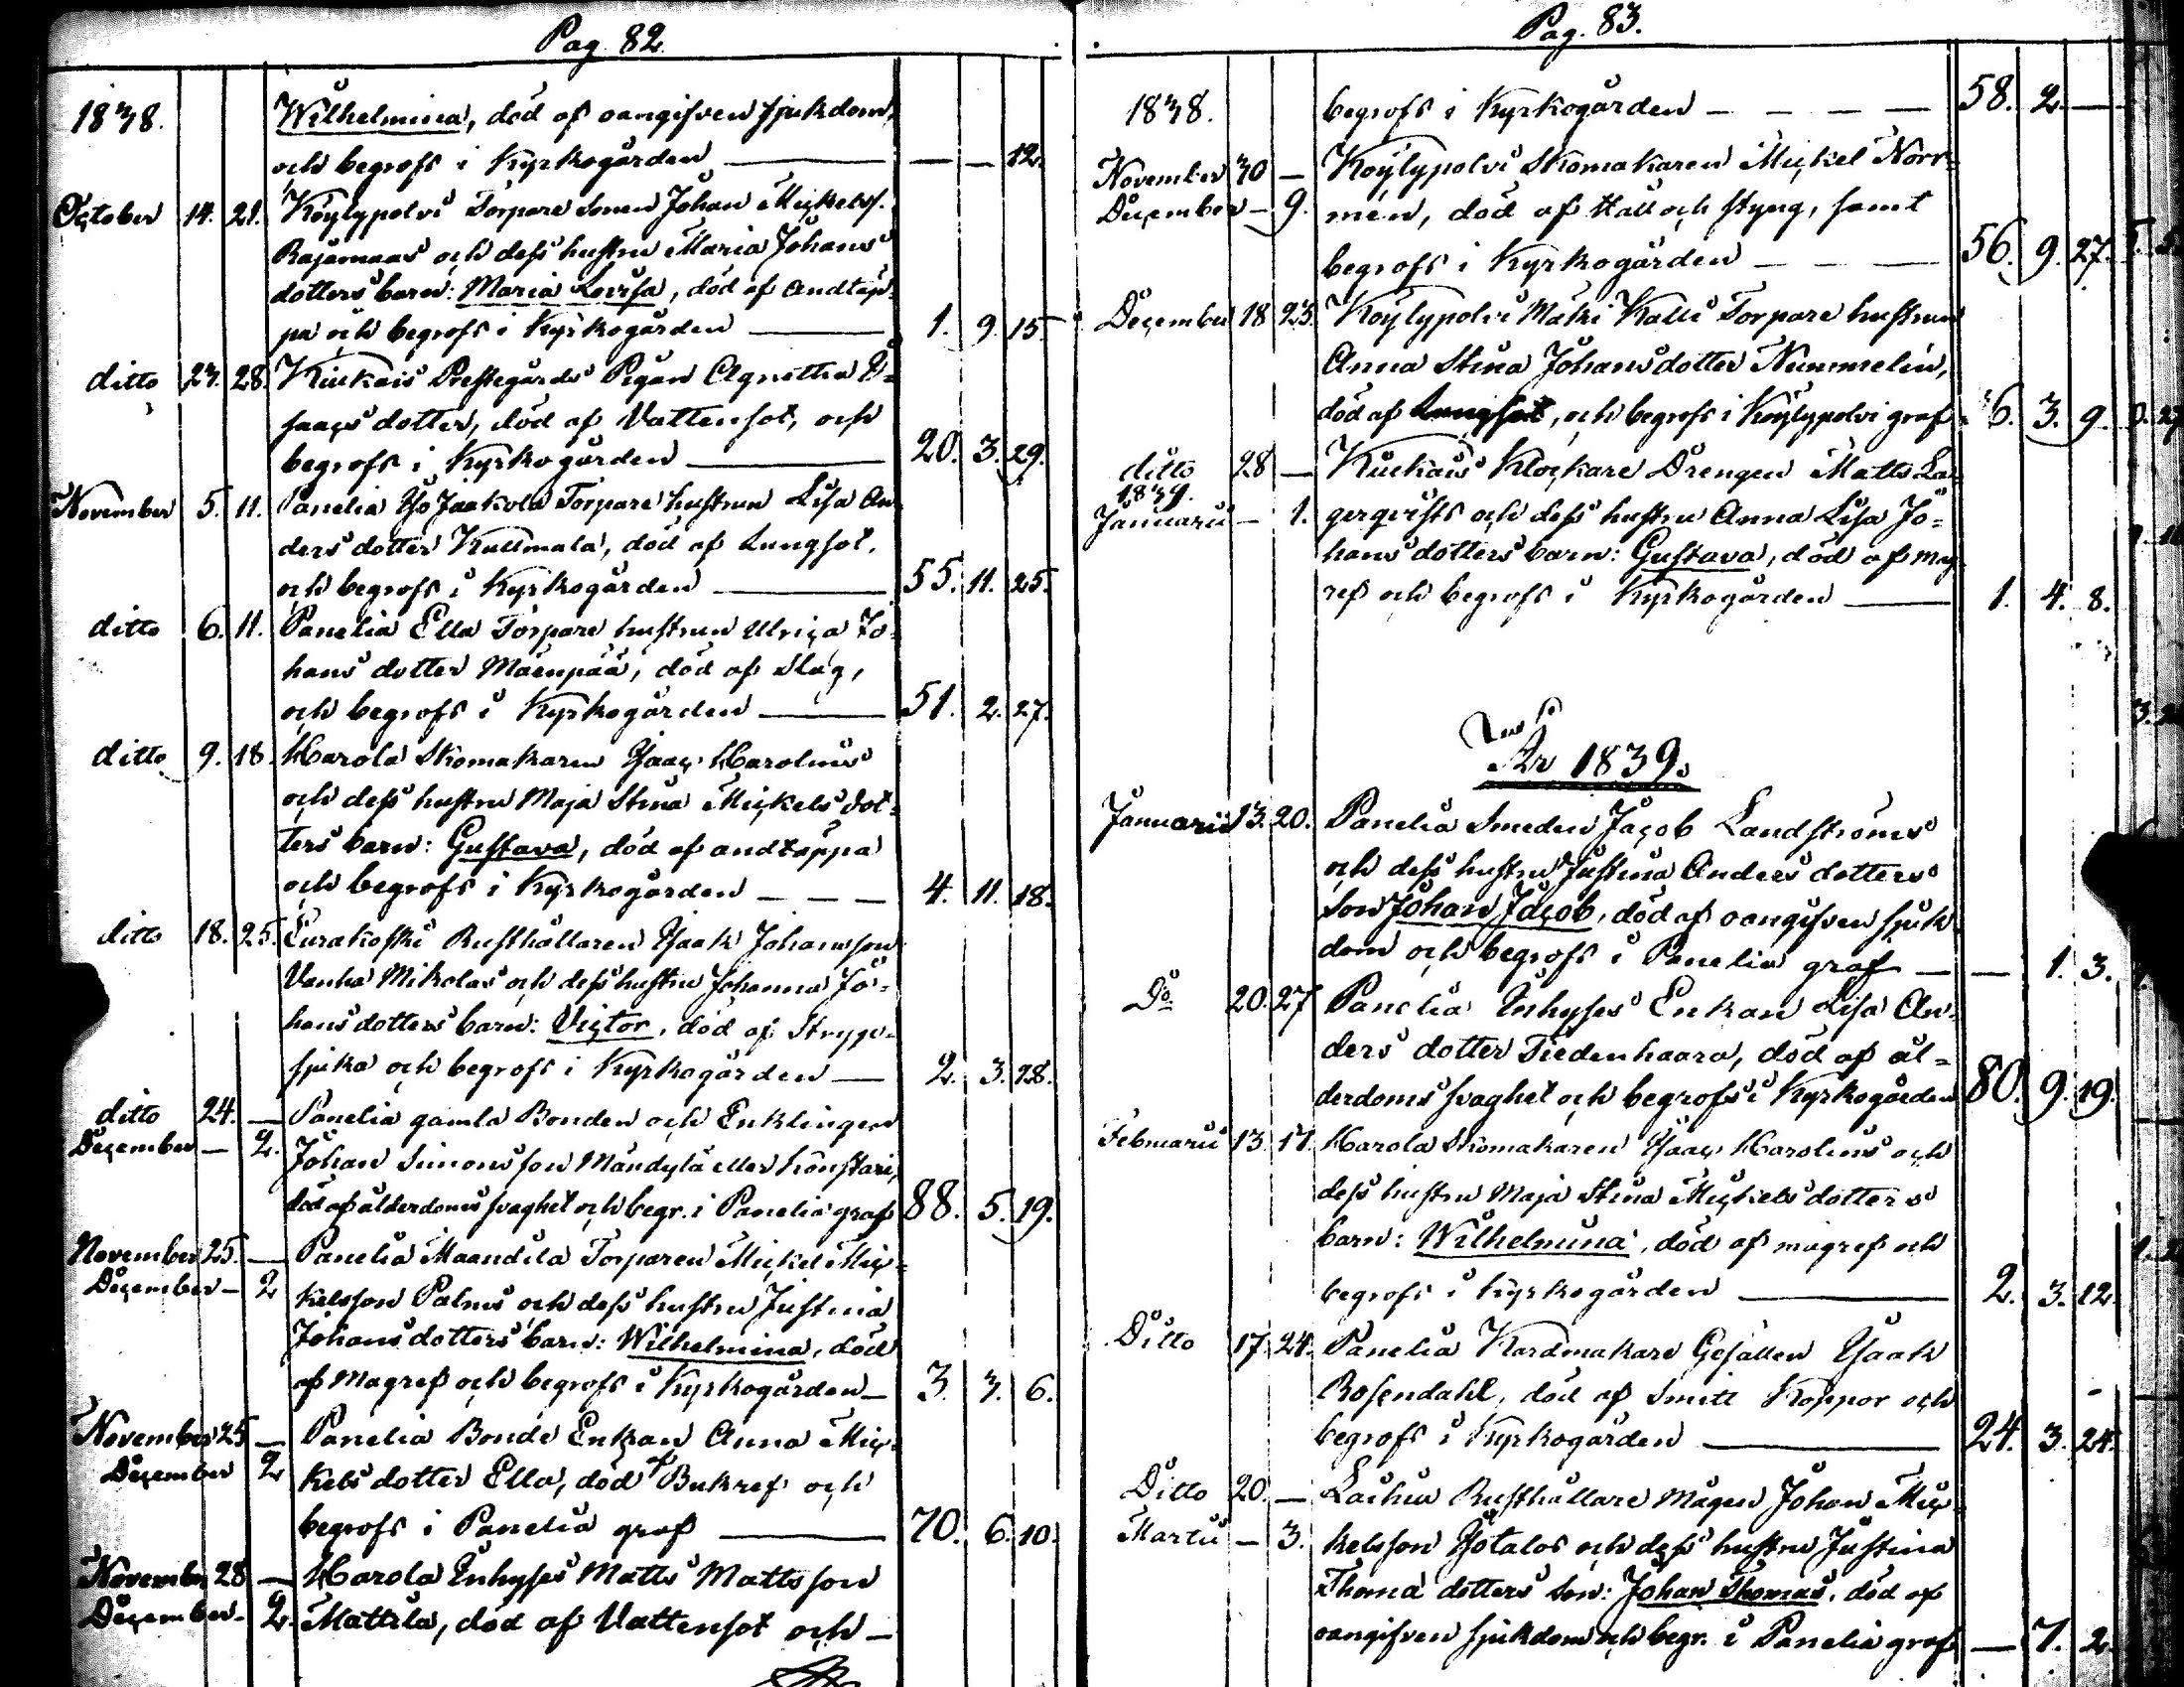 Pag. 82.
1838. Wilhelmina, död af oangifven sjukdom,
och begrofs i Kyrkogården — — — 12.
October 14. 21. Köylypolvi Torpare Sonen Johan Mickelss.
Rajamaas och dess hustru Maria Johans
dotters barn: Maria Lovisa, död af Andtäp-
pa och begrofs i Kyrkogården — 1. 9. 15.
ditto 23. 28. Kiukais Prestegårds Pigan Agnetha I-
saacs dotter, död af Vattensot, och
begrofs i Kyrkogården — 20. 3. 29.
November 5. 11. Panelia Yso Jaakola Torpare hustrun Lisa An-
ders dotter Kullmala, död af Lungsot,
och begrofs i Kyrkogården — 55. 11. 25.
ditto 6. 11. Panelia Ella Torpare hustrun Ulrica Jo-
hans dotter Mäenpää, död af Slag,
och begrofs i Kyrkogården — 51. 2. 27.
ditto 9. 18. Harola Skomakaren Isaac Harolins
och dess hustru Maja Stina Mickels dot-
ters barn: Gustava, död af andtäppa
och begrofs i Kyrkogården — — — 4. 11. 18.
ditto 18. 25. Eurakoski Rusthållaren Isaak Johansson
Vanha Mikolas och dess hustru Johanna Jo-
hans dotters barn: Victor, död af Stryp-
sjuka och begrofs i Kyrkogården — 2. 3. 28.
ditto 24. — Panelia gamla Bonden och Enklingen
December — 2. Johan Simonsson Mändylä eller Konstari,
död af ålderdoms svaghet och begr. i Panelia graf 88. 5. 19.
November 25. — Panelia Maandila Torparen Mickel Mic-
December — 2 kelsson Palms och dess hustru Justina
Johans dotters barn: Wilhelmina, död
af Magref och begrofs i Kyrkogården — 3. 3. 6.
November 25 — Panelia Bonde Enkan Anna Mic-
December 2 kels dotter Ella, död af Bukref och
begrofs i Panelia graf — 70. 6. 10.
November 28 — Harola Inhyses Matts Mattsson
December — 2. Mattila, död af Vattensot och —
Pag. 83.
1838. begrofs i Kyrkogården — — — — 58. 2. —
November 30 — Köylypolvi Skomakaren Mickel Norr-
December — 9. mén, död af Håll och Styng, samt
begrofs i Kyrkogården — — — 56. 9. 27.
December 18 25. Köylypolvi Mäki Kalli Torpare hustrun
Anna Stina Johans dotter Nummelin,
död af Lungsot, och begrofs i Köylypolvi graf 36. 3. 9.
ditto 28 — Kiukais Klockare Drengen Matts La-
1839.
Januarii — 1. gerqvists och dess hustru Anna Lisa Jo-
hans dotters barn: Gustava, död af mag-
ref och begrofs i Kyrkogården — 1. 4. 8.
År 1839.
Januarii 13. 20. Panelia Smeden Jacob Landströms
och dess hustru Justina Anders dotters
son Johan Jacob, död af oangifven sjuk-
dom och begrofs i Panelia graf — — 1. 3.
Do 20. 27 Panelia Inhyses Enkan Lisa An-
ders dotter Tiedenhaara, död af ål-
derdoms svaghet och begrofs i Kyrkogården 80. 9. 19.
Februarii 13. 17. Harola Skomakaren Isaac Harolins och
dess hustru Maja Stina Mickels dotters
barn: Wilhelmina, död af magref och
begrofs i Kyrkogården — 2. 3. 12.
Ditto 17. 24. Panelia Kardmakare Gesällen Isaak
Rosendahl, död af Smitt Koppor och
begrofs i Kyrkogården — 24. 3. 24.
Ditto 20. — Laihia Rusthållare Mågen Johan Mic-
Martii — 3. kelsson Isotalos och dess hustru Justina
Thoma dotters Son: Johan Thomas, död af
oangifven sjukdom och begr. i Panelia graf — 7. 2.